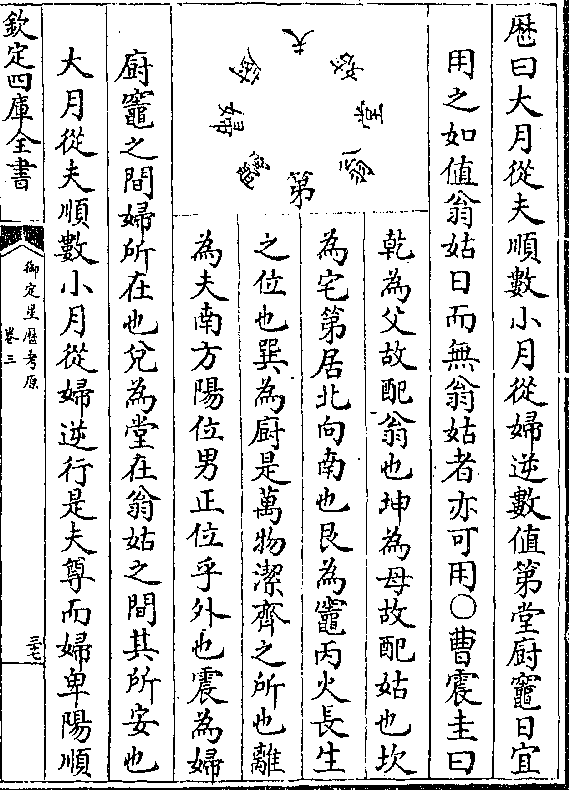 厯曰大月從夫順數小月從婦逆數值第堂廚竈日宜
用之如值翁姑日而無翁姑者亦可用○曹震圭曰
夫
姑
堂
翁
第
竈
婦
廚
乾為父故配翁也坤為母故配姑也坎
為宅第居北向南也艮為竈丙火長生
之位也巽為廚是萬物潔齊之所也離
為夫南方陽位男正位乎外也震為婦
廚竈之間婦所在也兌為堂在翁姑之間其所安也
大月從夫順數小月從婦逆行是夫尊而婦卑陽順
欽定四庫全書
御定星厯考原
卷三
三七